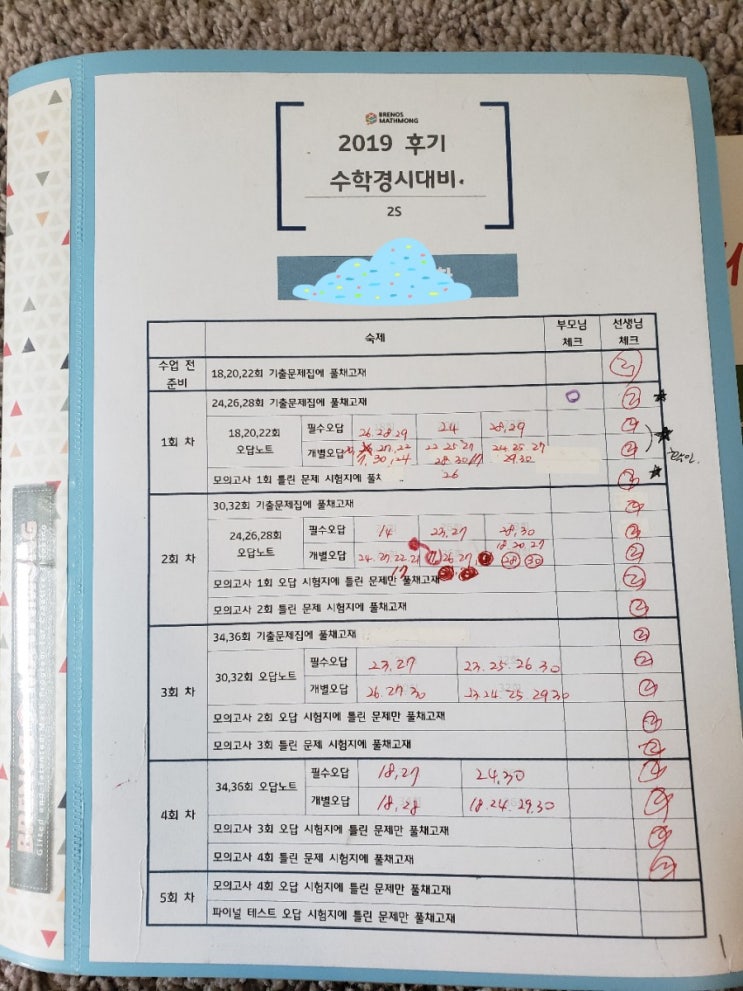 BRENOS
MATHMONG
2019 후기
수학경시대비.
2S
숙제
부모님
체크
선생님
체크
수업 전
준비
18,20,22회 기출문제집에 풀채고재
1회 차
24,26,28회 기출문제집에 풀채고재
18,20,22회
오답노트
필수오답
26.28.29
24
28,29
개별오답
27,22
22 25 27
24.25.27
30,24
28.30
29.30
확인.
모의고사 1회 틀린 문제 시험지에 풀
26
2회 차
30,32회 기출문제집에 풀채고재
24,26,28회
오답노트
필수오답
14
23,27
28,30
개별오답
18 20,27
26.27
28
30
17
모의고사 1회 오답 시험지에 틀린 문제만 풀채고재
모의고사 2회 틀린 문제 시험지에 풀채고재
3회 차
34,36회 기출문제집에 풀채고재
30,32회 오답노트
필수오답
23.27
23.25.26.30
개별오답
26.27.30
23.24.25.29.30
모의고사 2회 오답 시험지에 틀린 문제만 풀채고재
모의고사 3회 틀린 문제 시험지에 풀채고재
4회 차
34,36회 오답노트
필수오답
18,27
24,30
개별오답
18,28
18.24.29.30
모의고사 3회 오답 시험지에 틀린 문제만 풀채고재
모의고사 4회 틀린 문제 시험지에 풀채고재
5회 차
모의고사 4회 오답 시험지에 틀린 문제만 풀채고재
파이널 테스트 오답 시험지에 틀린 문제만 풀채고재